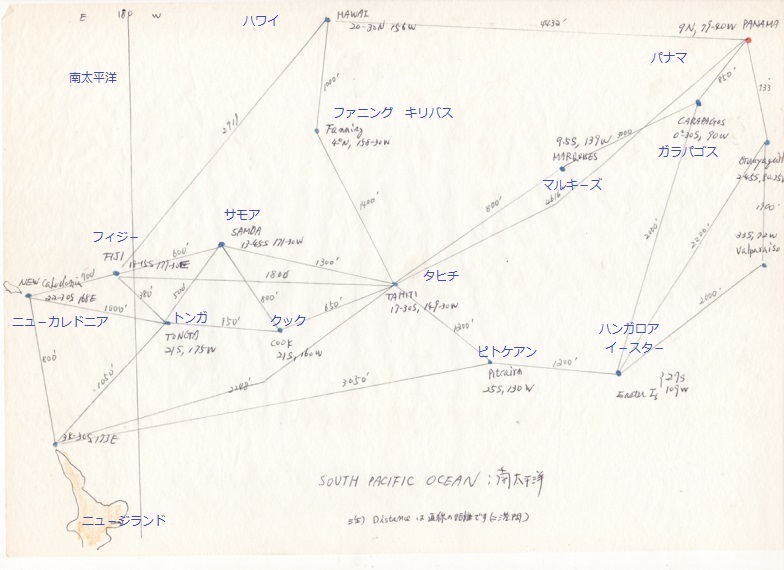 E 180 W
ハワイ
HAWAI
20-30N 156W
4432'
9N, 79-40W PANAMA
パナマ
南太平洋
1000'
850'
933'
ファニング キリバス
Fanning
4°N, 158-30W
CARAPAGOS
0°-30S, 90W
ガラパゴス
9.5S, 139W
3000'
MARQUISES
マルキーズ
800'
4616
1400'
サモア
SAMOA
13-45S 171-30W
フィジー
FIJI
600'
1300'
33S, 72W
Valparaiso
NEW Caledonia
700'
22-20S 168E
1800
タヒチ
TAHITI
17-30S, 149-30W
380'
500'
800'
650'
1000'
2000'
ニューカレドニア
トンガ
TONGA
21S, 175W
850'
クック
COOK
21S, 160W
1200'
ピトケアン
Pitcairn
25S, 130W
1200'
ハンガロア
イースター
Easter Is
27S
109W
800'
1050'
3050'
SOUTH PACIFIC OCEAN : 南太平洋
ニュージランド
注) Distance は直線の距離です